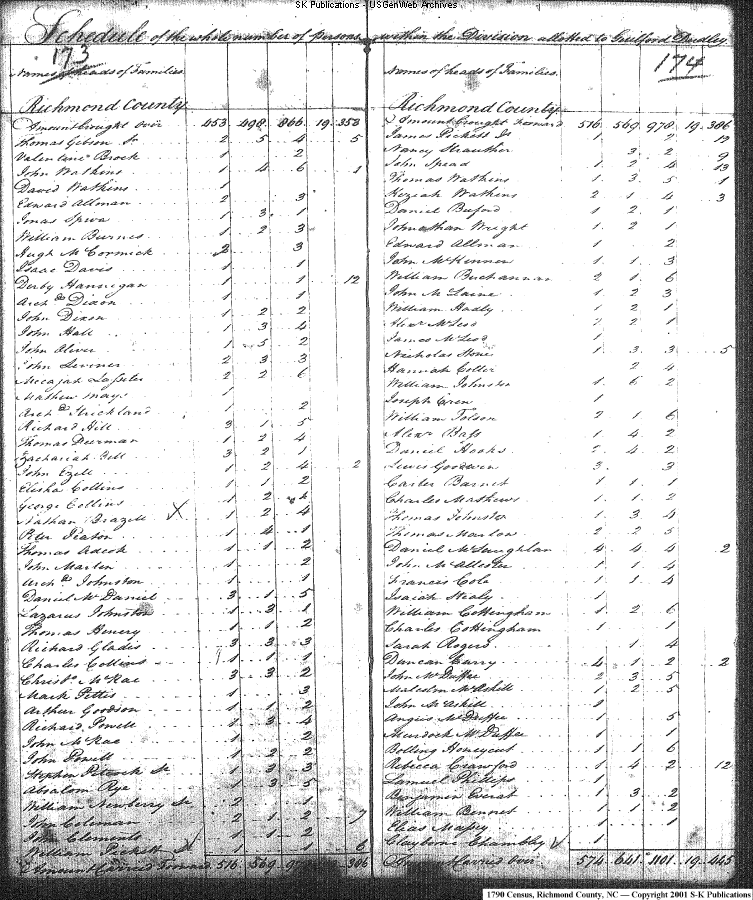 SK Publications - USGenWeb Archives
Schedule of the whole number of persons within the Division allotted to Guilford Dudley
173
Names of heads of Families
Richmond County
Amount brought over 453 498 866 19 353
Thomas Gibson Sr 2 5 4 5
Valentine Brock 1 2
John Watkins 1 4 6 1
David Watkins 1
Edward Allman 2 3
Jonas Spiva 1 3 1
William Burnes 1 2 3
Hugh McCormick 2 3
Isaac Davis 1 1
Derby Hannegan 1 1 12
Archd Dixon 1 1
John Dixon 1 2 2
John Hall 1 3 4
John Oliver 1 5 2
John Leviner 2 3 3
Mecajah Lasseter 2 2 6
Mathew Mays 1
Archd Strickland 1 2
Richard Hill 3 1 5
Thomas Deerman 1 2 4
Zachariah Bell 3 2 1
John Ezell 1 2 4 2
Elisha Collins 1 1 2
George Collins 1 2
Nathan Brazell X 1 2 4
Peter Peaton 1 4 1
Thomas Adcok 1 1 2
John Marlin 1 2
Archd Johnston 1 1
Daniel McDaniel 3 1 5
Lazarus Johnston 1 3 1
Thomas Henery 1 1 2
Richard Gladis 3 3 3
Charles Collins 1 1 1
Christo. McRae 3 3 2
Mark Pittis 1 3
Arthur Goodson 1 1 2
Richard Powell 1 3 4
John McRae 1 2
John Powell 1 2 2
Stephen Pitcock Sr 1 3 3
Absalom Rye 1 3 5
William Newberry Sr 2 1
John Coleman 2 1 2 7
John Clements 1 1 2
William Pickett 1 1 6
Amount Carried Forward 516 569 306
174
Names of heads of Families
Richmond County
Amount brought forward 516 569 978 19 386
James Pickett Jr 1 2 12
Nancy Strauther 3 2 9
John Spead 1 2 4 13
Thomas Watkins 1 3 5 1
Keziah Watkins 2 1 4 3
Daniel Buford 1 2 1
Johnathan Wright 1 2 1
Edward Allman 1 2
John McKinnen 1 1 3
William Buchannan 2 1 6
John McLaine 1 2 3
William Hadly 1 2 1
Alexr McLeod 2 2 1
James McLeod 1
Nicholas Stone 1 3 3 5
Hannah Coller 2 4
William Johnster 1 6 2
Joseph Eren 1
William Tolson 2 1 6
Alexr Bass 1 4 2
Daniel Hooks 2 4 2
Lewis Goodwin 3 3
Carter Barnet 1 1 1
Charles Mathews 1 1 2
Thomas Johnster 1 3 4
Thomas Marlow 2 2 5
Daniel McLaughlan 4 4 4 2
John McAllester 1 1 4
Francis Cole 1 1 4
Isaiah Stealy 1
William Cottingham 1 2 6
Charles Cottingham 1 1
Sarah Rogers 1 4
Duncan Carry 4 1 2 2
John McDuffee 2 3 5
Malcolm McAskill 1 2 5
John McAskill
Angus McDuffee 1 5
Murdock McDuffee 1 1
Bolling Honeycut 1 1 6
Rebecca Crawford 1 4 2 12
Samuel Phillips 1
Benjamin Everat 1 3 2
William Bennet 1 1 2
Elias Massey 1 1
Clayborne Chambly 1
Amount Carried over 574 641 1101 19 445
1790 Census, Richmond County, NC — Copyright 2001 S-K Publications